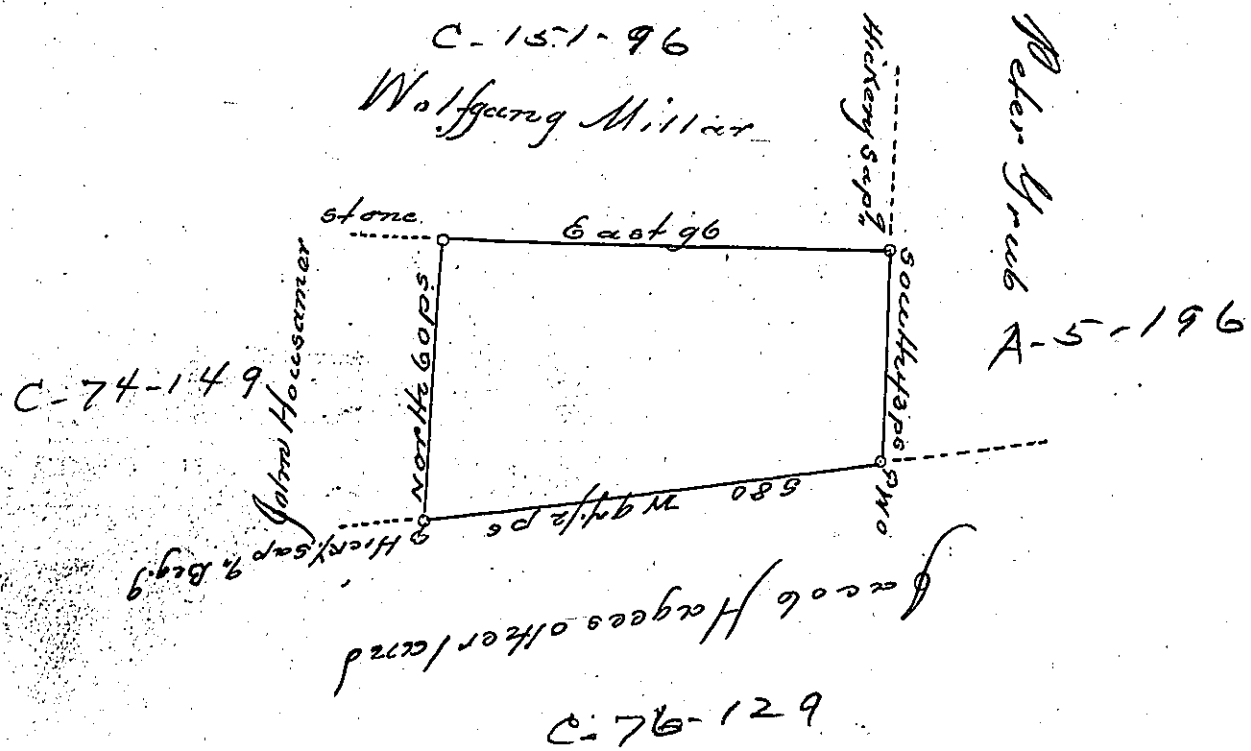 C-151-96
Wolfgang Millar
Hickery Sapn
Peter Grub
A-5-196
stone
East 96
North 60 ps
John Housamer
C-74-149
S80 W 97 1/2 ps
W O
Hicky. sapn Beg.g
Jacob Hagees other land
C-76-129